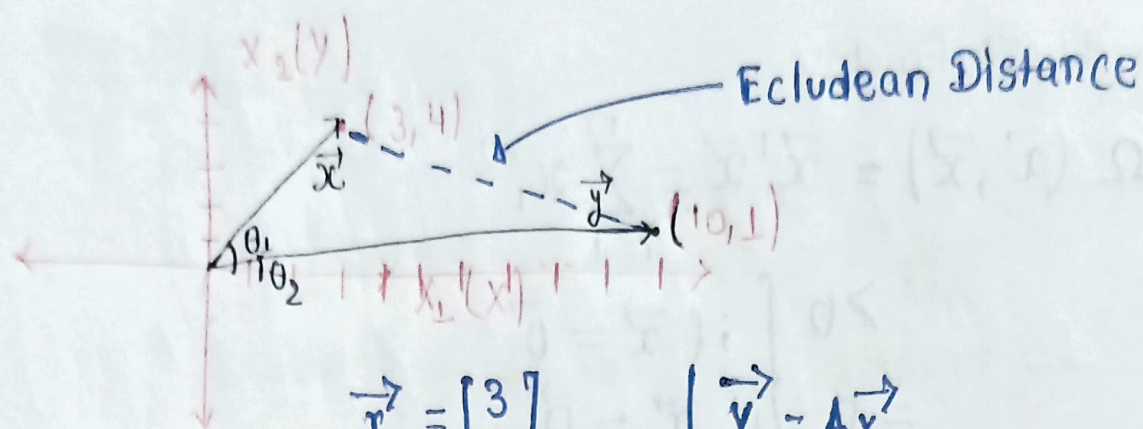 x₂(y)
Ecludean Distance
(3,4)
x⃗
y⃗
(10,1)
θ₁
θ₂
x₁(x)
= [3]